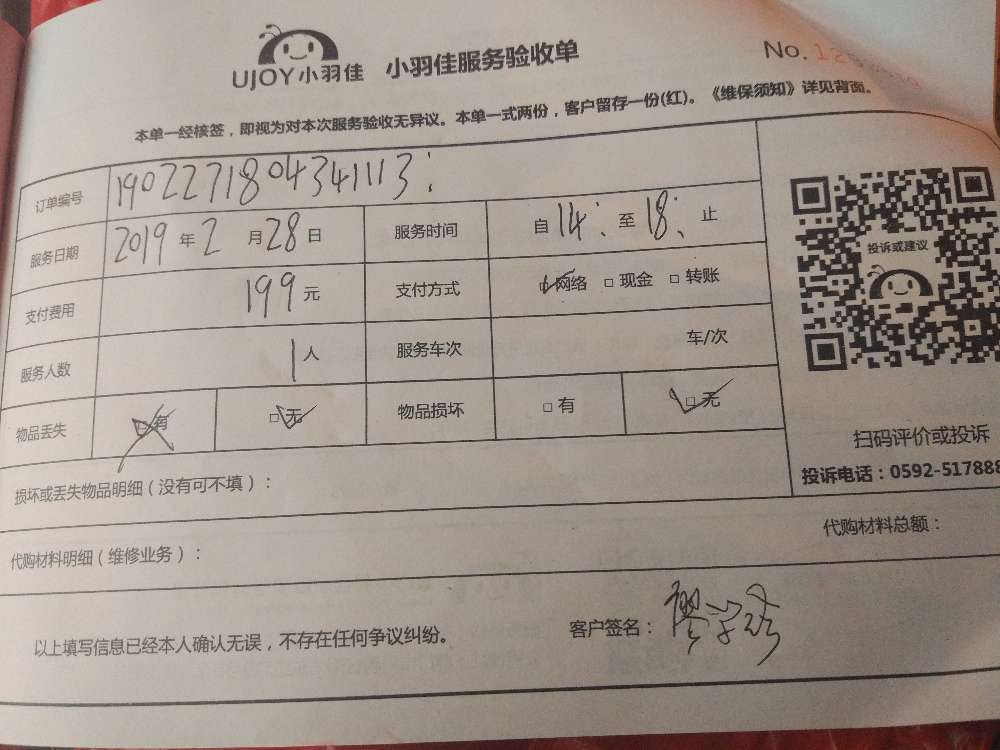 UJOY小羽佳 小羽佳服务验收单 No.
本单一经核签，即视为对本次服务验收无异议。本单一式两份，客户留存一份(红)。《维保须知》详见背面。
订单编号 1902271804341113
服务日期 2019年2月28日 服务时间 自14:至18:止
支付费用 199元 支付方式 网络 □现金 □转账
服务人数 1人 服务车次 车/次
物品丢失 □有 □无 物品损坏 □有 □无
投诉或建议
扫码评价或投诉
投诉电话：0592-517888
损坏或丢失物品明细（没有可不填）：
代购材料明细（维修业务）： 代购材料总额：
以上填写信息已经本人确认无误，不存在任何争议纠纷。 客户签名：廖